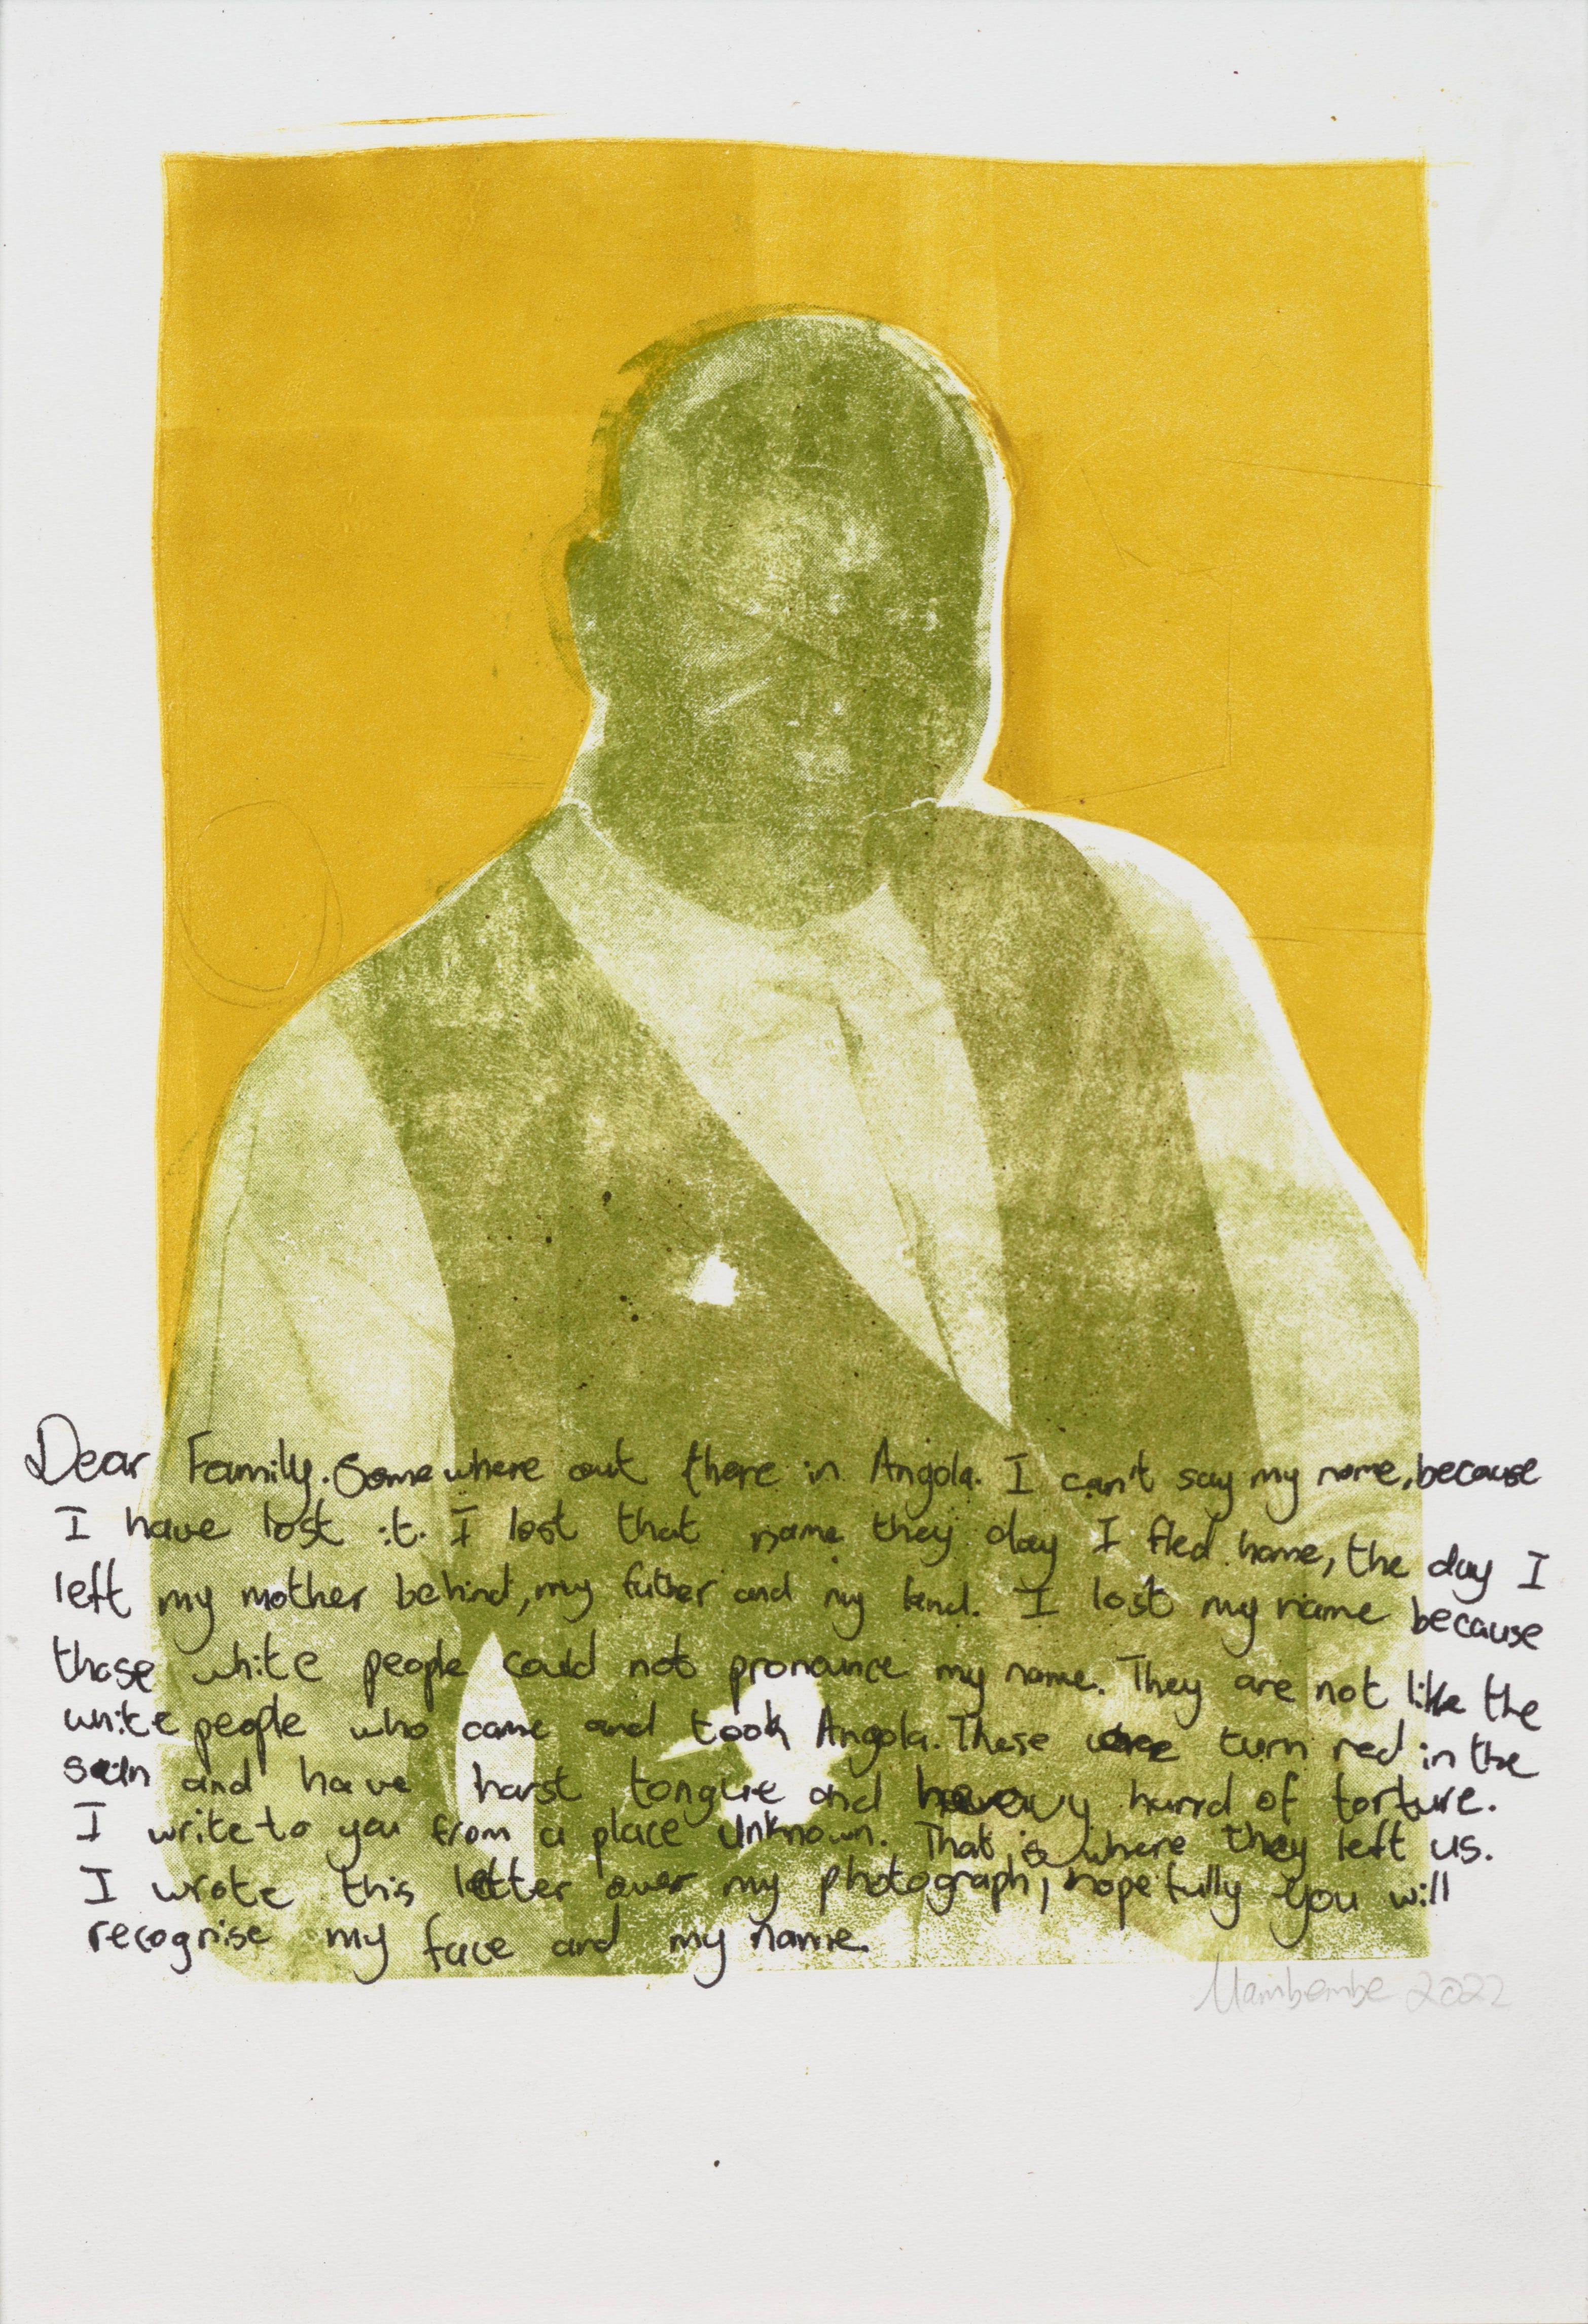 Dear Family. Somewhere out there in Angola. I can't say my name, because
I have lost it. I lost that name they day I fled home, the day I
left my mother behind, my father and my land. I lost my name because
those white people could not pronounce my name. They are not like the
white people who came and took Angola. These were turn red in the
sun and have harst tongue and heavy hand of torture.
I write to you from a place Unknown. That is where they left us.
I wrote this letter over my photograph, hopefully you will
recognise my face and my name.
Mambembe 2022